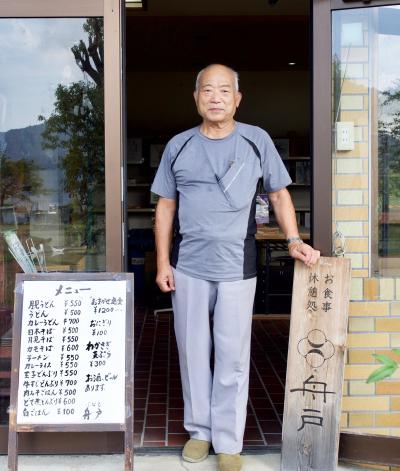 メニュー
月見うどん ¥550
うどん ¥500
カレーうどん ¥700
日本そば ¥500
月見そば ¥550
カモそば ¥600
ラーメン ¥550
カレー丼 ¥550
玉子どんぶり ¥550
牛すじどんぶり ¥700
肉みそごはん ¥500
とて煮どんぶり ¥600
白ごはん ¥100
おまかせ定食
¥1200
おにぎり
¥100
わかさぎ
天ぷら
¥300
お酒、ビール
あります。
舟戸
お食事
休憩処
舟戸